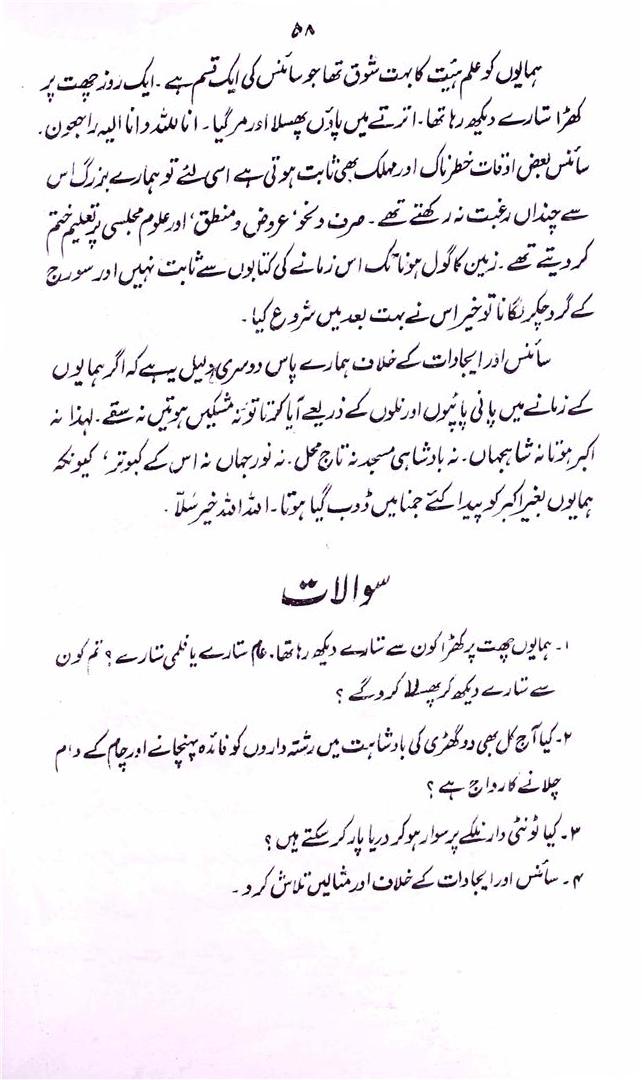 ۵۸
ہمایوں کو علم ہیئت کا بہت شوق تھا جو سائنس کی ایک قسم ہے۔ ایک روز چھت پر
کھڑا ستارے دیکھ رہا تھا۔ اترتے میں پاؤں پھسلا اور مرگیا۔ انا للہ و انا الیہ راجعون۔
سائنس بعض اوقات خطرناک اور مہلک بھی ثابت ہوتی ہے اسی لئے تو ہمارے بزرگ اس
سے چنداں رغبت نہ رکھتے تھے۔ صرف و نحو، عروض و منطق، اور علوم مجلسی پر تعلیم ختم
کر دیتے تھے۔ زمین کا گول ہونا تک اس زمانے کی کتابوں سے ثابت نہیں اور سورج
کے گرد چکر لگانا تو خیر اس نے بہت بعد میں شروع کیا۔
سائنس اور ایجادات کے خلاف ہمارے پاس دوسری دلیل یہ ہے کہ اگر ہمایوں
کے زمانے میں پانی پائپوں اور نلوں کے ذریعے آیا کرتا تو نہ مشکیں ہوتیں نہ سقے۔ لہذا نہ
اکبر ہوتا نہ شاہجہاں۔ نہ بادشاہی مسجد نہ تاج محل۔ نہ نور جہاں نہ اس کے کبوتر، کیونکہ
ہمایوں بغیر اکبر کو پیدا کئے جمنا میں ڈوب گیا ہوتا۔ اللہ اللہ خیر سلّا۔
سوالات
۱۔ ہمایوں چھت پر کھڑا کون سے ستارے دیکھ رہا تھا۔ عام ستارے یا فلمی ستارے؟ تم کون
سے ستارے دیکھ کر پھسلا کرو گے؟
۲۔ کیا آج کل بھی دو گھڑی کی بادشاہت میں رشتہ داروں کو فائدہ پہنچانے اور چام کے دام
چلانے کا رواج ہے؟
۳۔ کیا ٹونٹی دار نلکے پر سوار ہو کر دریا پار کر سکتے ہیں؟
۴۔ سائنس اور ایجادات کے خلاف اور مثالیں تلاش کرو۔